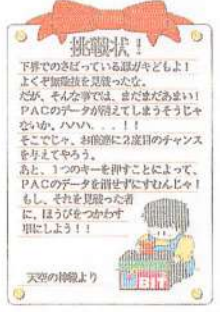 挑戦状！
下界でのさばっている豚がキどもよ！
よくぞ無敵技を見破ったな。
だが、そんな事では、まだまだあまい！
PACのデータが消えてしまうそうじゃ
ないか。ハハハ．．！！
そこでじゃ、お前達に2度目のチャンス
を与えてやろう。
あと、1つのキーを押すことによって、
PACのデータを消せずにすむんじゃ！
もし、それを見破った者
に、ほうびをつかわす
事にしよう！！
天空の神様より
BIT